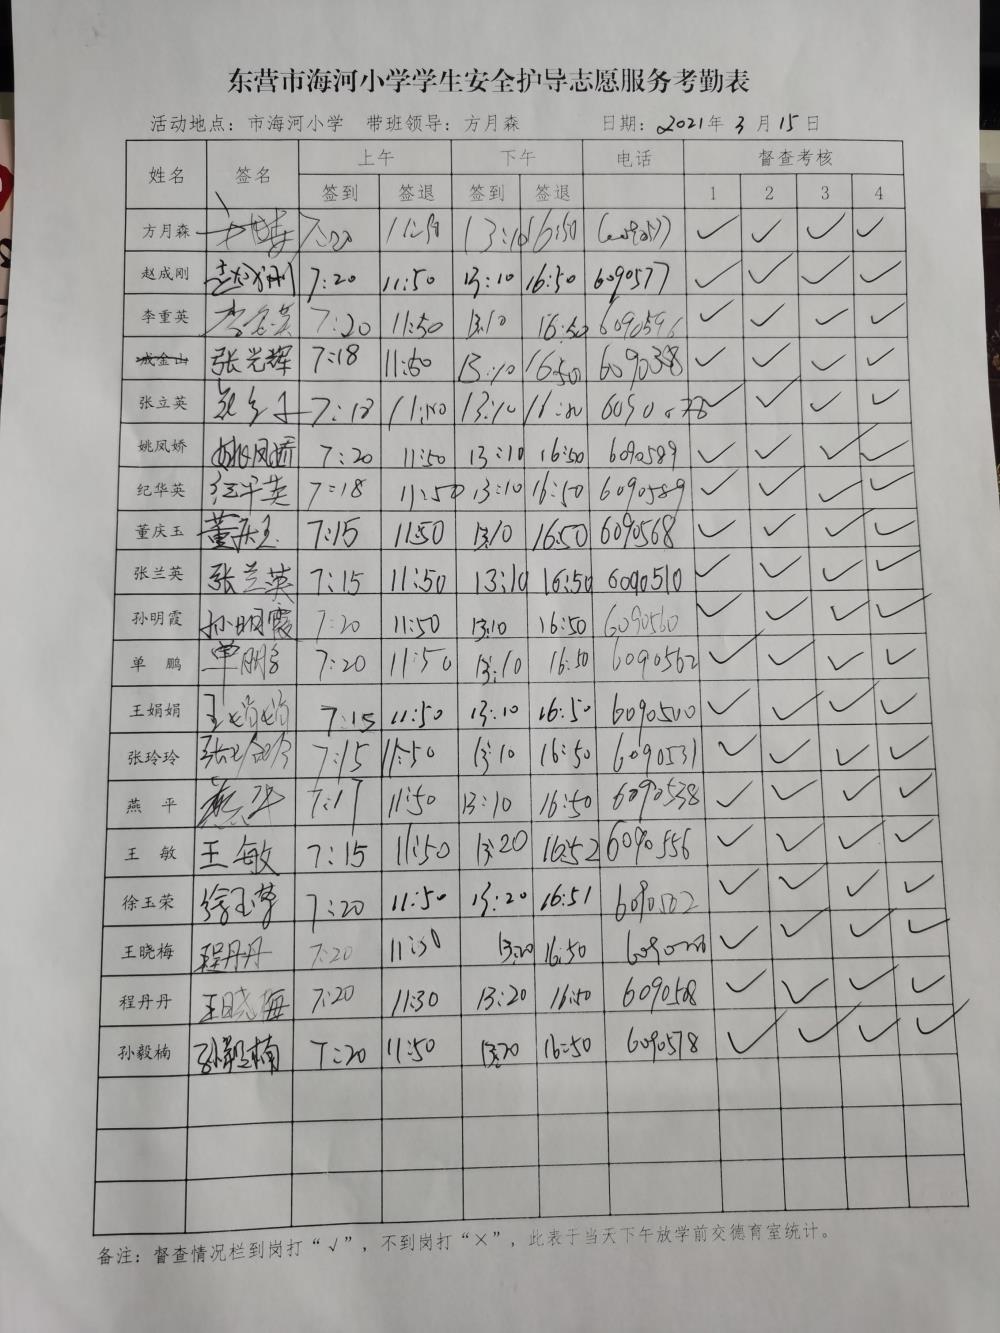 东营市海河小学学生安全护导志愿服务考勤表
活动地点：市海河小学 带班领导：方月森 日期：2021年3月15日
姓名 签名 上午 下午 电话 督查考核
签到 签退 签到 签退 1 2 3 4
方月森 7:20 11:50 13:10 16:50 6090577 ✓ ✓ ✓ ✓
赵成刚 赵成刚 7:20 11:50 13:10 16:50 6090577 ✓ ✓ ✓ ✓
李重英 李重英 7:20 11:50 13:10 16:50 6090596 ✓ ✓ ✓ ✓
成金山 张光辉 7:18 11:50 13:10 16:50 ✓ ✓ ✓ ✓
张立英 7:18 11:50 13:10 ✓ ✓ ✓ ✓
姚凤娇 姚凤娇 7:20 11:50 13:10 16:50 6090589 ✓ ✓ ✓ ✓
纪华英 纪华英 7:18 11:50 13:10 16:50 6090589 ✓ ✓ ✓ ✓
董庆玉 董庆玉 7:15 11:50 13:10 16:50 6090568 ✓ ✓ ✓ ✓
张兰英 张兰英 7:15 11:50 13:10 16:50 6090510 ✓ ✓ ✓ ✓
孙明霞 孙明霞 7:20 11:50 13:10 16:50 6090560 ✓ ✓ ✓ ✓
单 鹏 单鹏 7:20 11:50 13:10 16:50 6090562 ✓ ✓ ✓ ✓
王娟娟 王娟娟 7:15 11:50 13:10 16:50 6090500 ✓ ✓ ✓ ✓
张玲玲 张玲玲 7:15 11:50 13:10 16:50 6090531 ✓ ✓ ✓ ✓
燕 平 燕平 7:17 11:50 13:10 16:50 6090538 ✓ ✓ ✓ ✓
王 敏 王敏 7:15 11:50 13:20 16:52 6090556 ✓ ✓ ✓ ✓
徐玉荣 徐玉荣 7:20 11:50 13:20 16:51 6090502 ✓ ✓ ✓ ✓
王晓梅 程丹丹 7:20 11:30 13:20 16:50 ✓ ✓ ✓ ✓
程丹丹 王晓梅 7:20 11:30 13:20 16:50 6090508 ✓ ✓ ✓ ✓
孙毅楠 孙毅楠 7:20 11:50 13:20 16:50 6090578 ✓ ✓ ✓ ✓
备注：督查情况栏到岗打“√”，不到岗打“×”，此表于当天下午放学前交德育室统计。